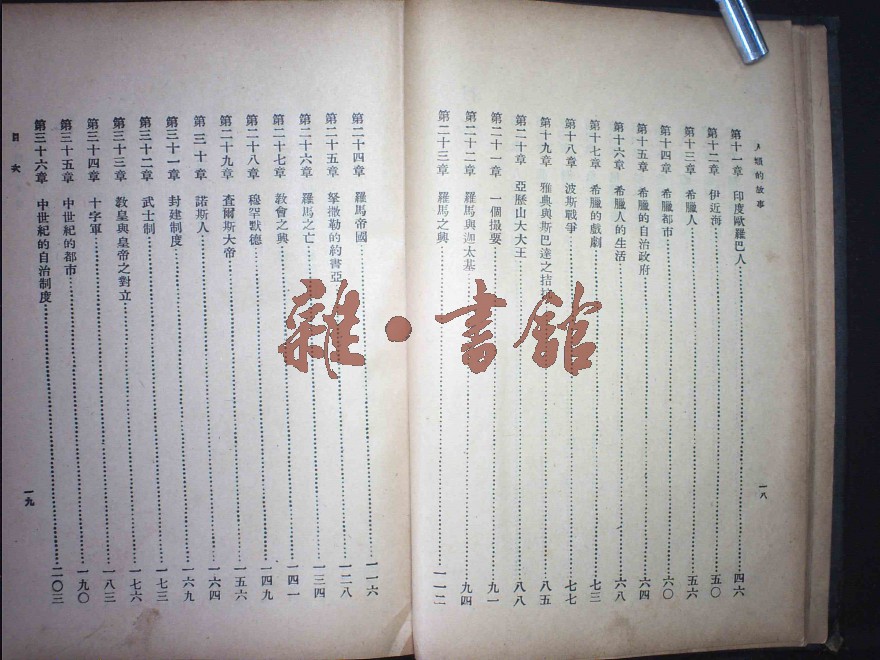 人類的故事
第十一章 印度歐羅巴人 四六
第十二章 伊近海 五〇
第十三章 希臘人 五六
第十四章 希臘都市 六〇
第十五章 希臘的自治政府 六四
第十六章 希臘人的生活 六八
第十七章 希臘的戲劇 七三
第十八章 波斯戰爭 七七
第十九章 雅典與斯巴達之拮抗 八五
第二十章 亞歷山大大王 八八
第二十一章 一個撮要 九一
第二十二章 羅馬與迦太基 九四
第二十三章 羅馬之興 一一二
一八
第二十四章 羅馬帝國 一一六
第二十五章 拏撒勒的約書亞 一二八
第二十六章 羅馬之亡 一三四
第二十七章 教會之興 一四一
第二十八章 穆罕默德 一四九
第二十九章 查爾斯大帝 一五六
第三十章 諾斯人 一六四
第三十一章 封建制度 一六九
第三十二章 武士制 一七三
第三十三章 教皇與皇帝之對立 一七六
第三十四章 十字軍 一八三
第三十五章 中世紀的都市 一九〇
第三十六章 中世紀的自治制度 二〇三
目次
一九
雜·書館